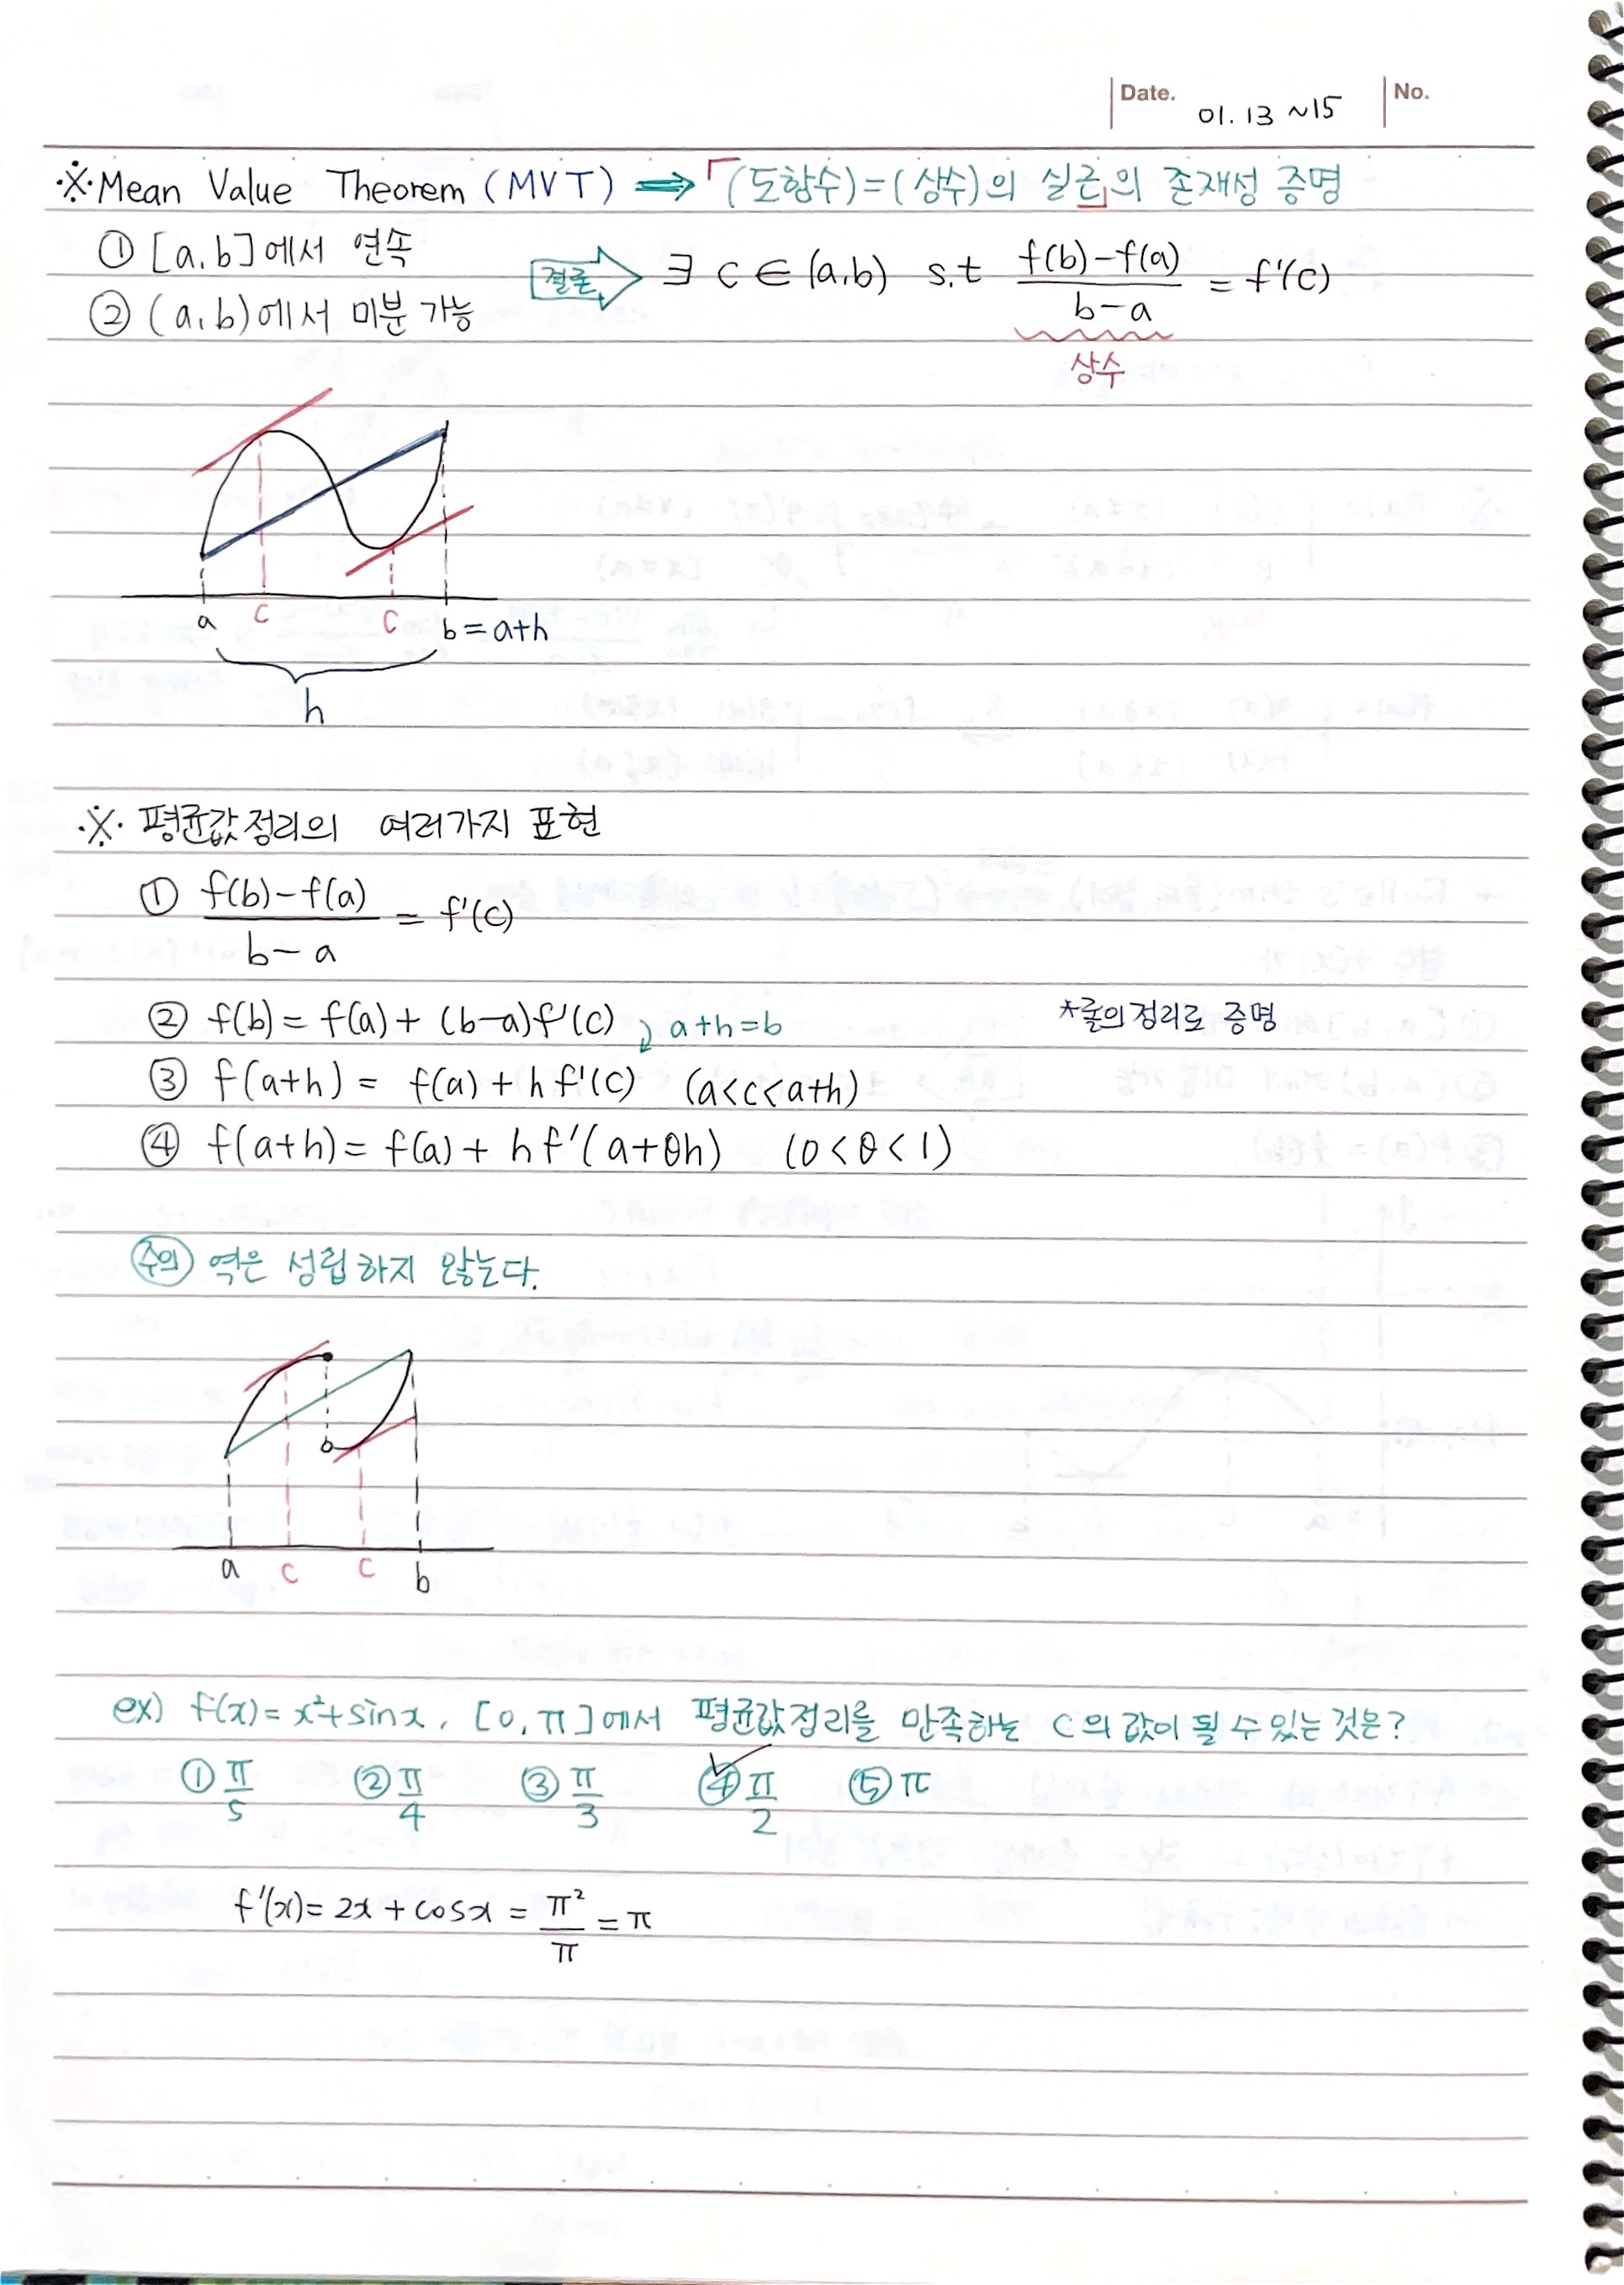 Date. 01. 13 ~15 No.
※ Mean Value Theorem (MVT) ⇒ 「(도함수)=(상수)의 실근」의 존재성 증명
① [a, b]에서 연속
② (a, b)에서 미분 가능
결론 ∃ c ∈ (a, b) s.t (f(b)-f(a))/(b-a) = f'(c)
상수
a c c b = a+h
h
※ 평균값 정리의 여러가지 표현
① (f(b)-f(a))/(b-a) = f'(c)
② f(b) = f(a) + (b-a)f'(c) a+h=b
*롤의 정리로 증명
③ f(a+h) = f(a) + h f'(c) (a<c<a+h)
④ f(a+h) = f(a) + h f'(a+θh) (0<θ<1)
주의 역은 성립하지 않는다.
a c c b
ex) f(x) = x²+sinx, [0, π]에서 평균값정리를 만족하는 c의 값이 될 수 있는 것은?
① π/5 ② π/4 ③ π/3 ④ π/2 ⑤ π
f'(x) = 2x + cosx = π²/π = π